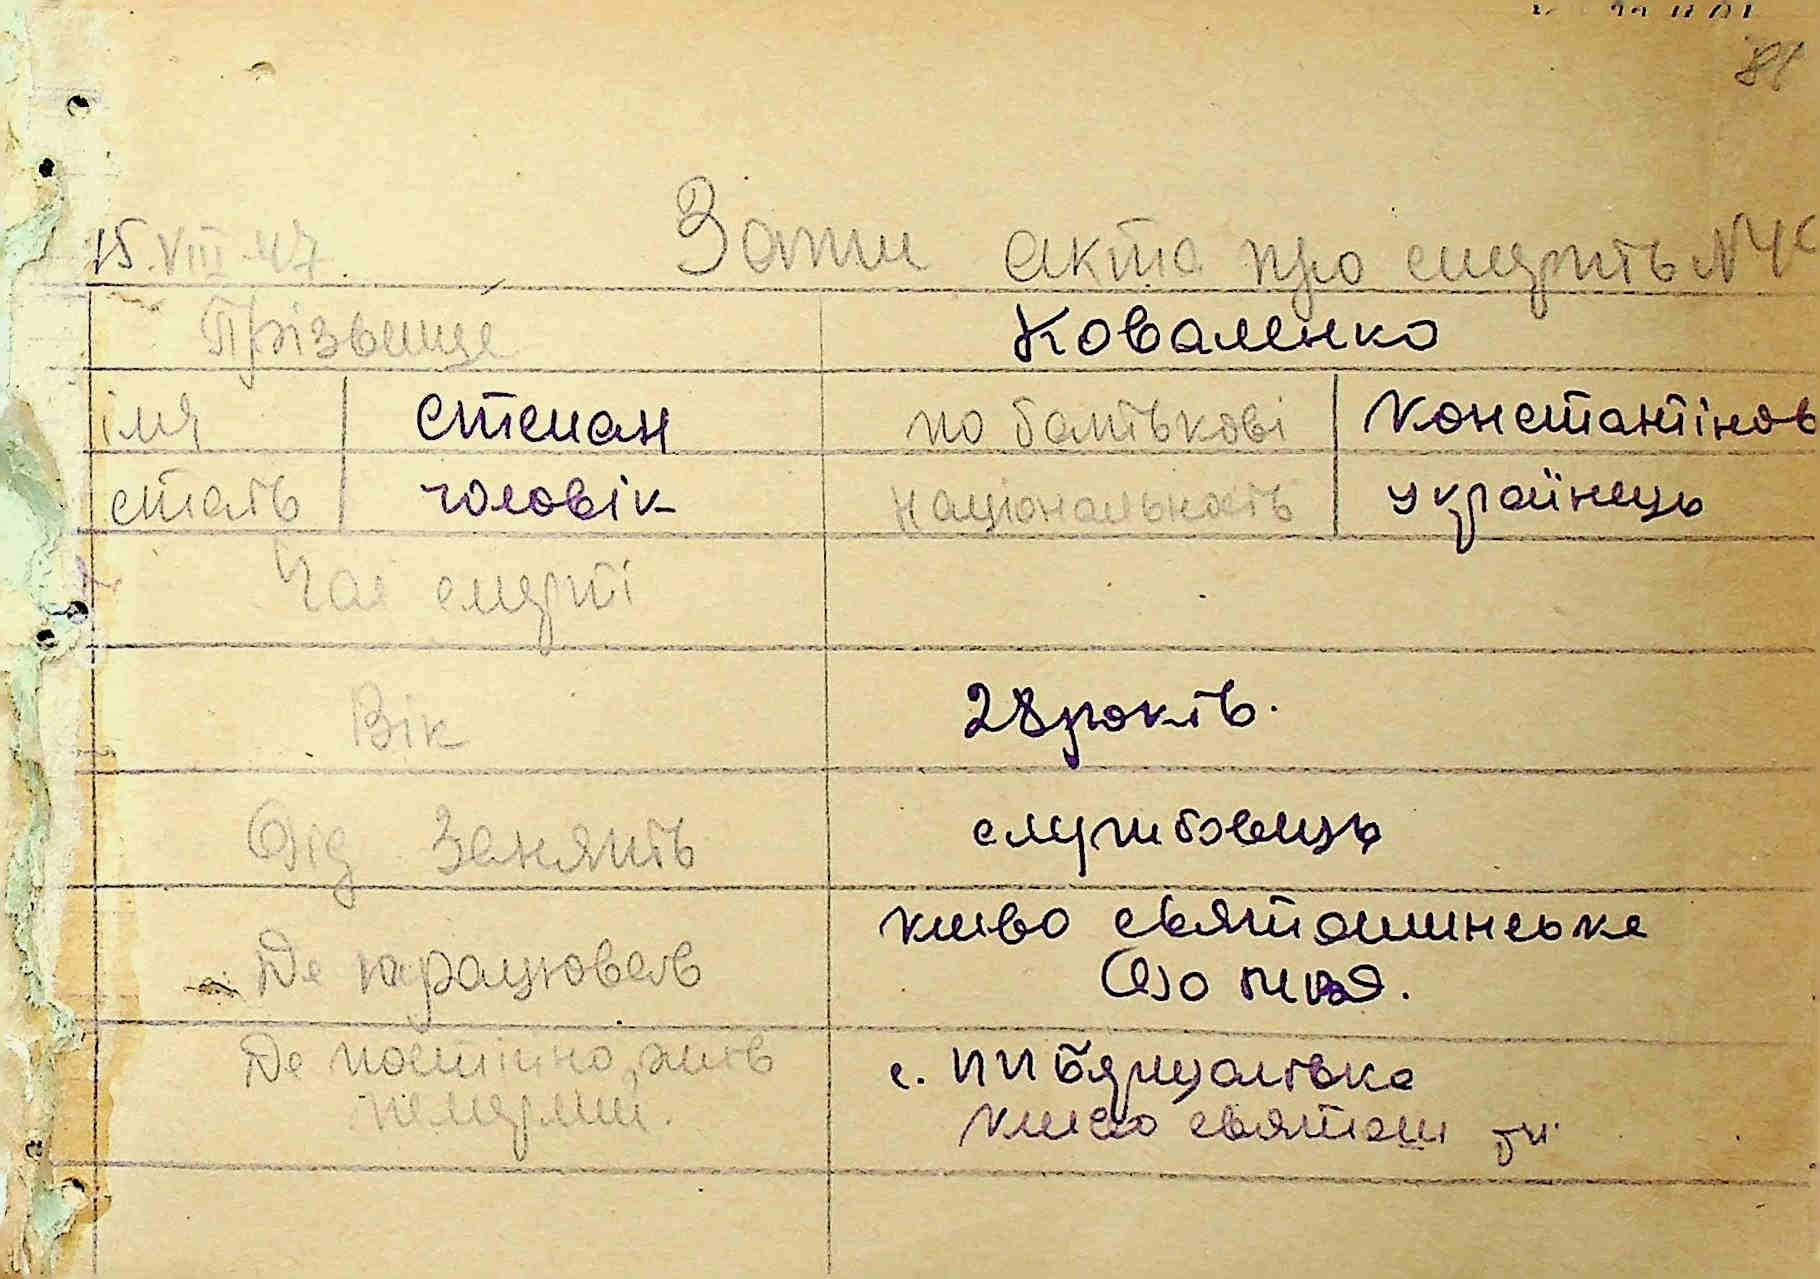 81
15.VIII-47 Запис акта про смерть N4
Прізвище Коваленко
імя Степан по батькові Константінов
стать чоловік національність українець
Час смерті
Вік 28 років.
Від занять службовець
Де працював києво святошинське
Де постійно жив с. П П Борщагівка
києво святош